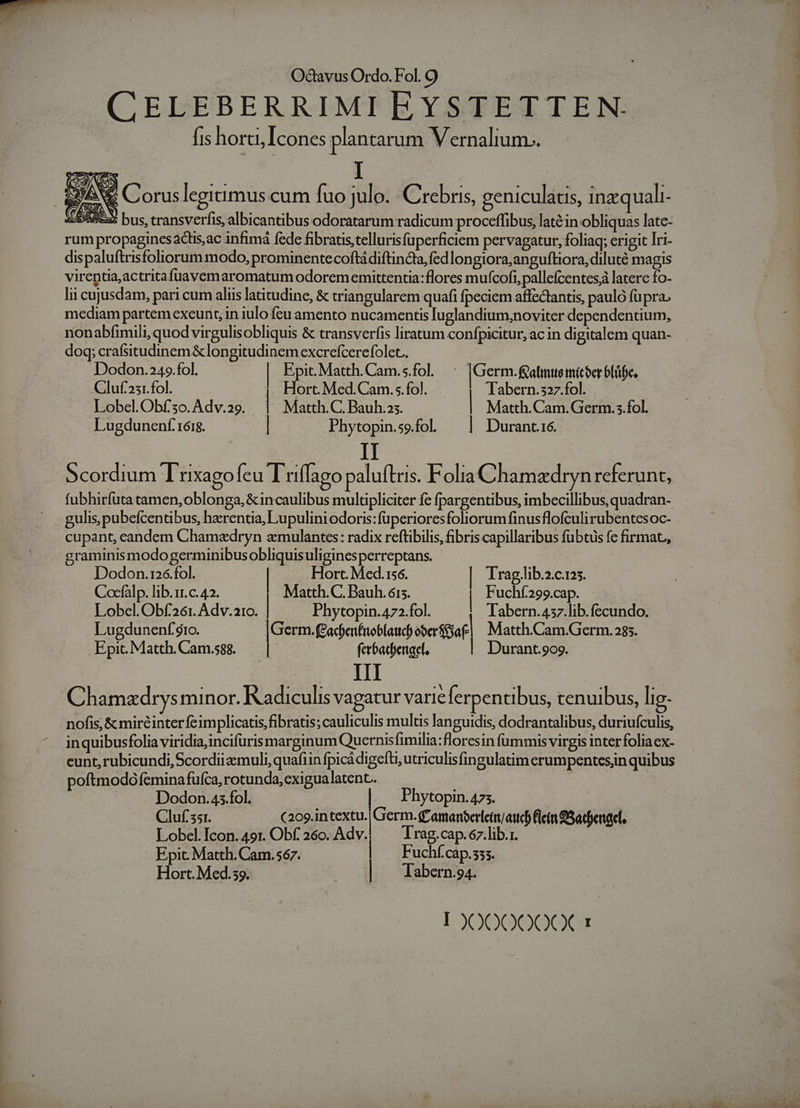 Octavus Ordo. Fol. 9
CELEBERRIMI EYSTETTEN-
ſis horti, Icones plantarum Vernalium.
I
ACorus legitimus cum ſuo julo. Crebris, geniculatis, inæquali-
bus, transverſis, albicantibus odoratarum radicum proceſſibus, latè in obliquas late-
rum propagines actis, ac infimâ ſede fibratis, telluris ſuperficiem pervagatur, foliaq; erigit Iri-
dis paluſtris foliorum modo, prominente coſtâ diſtincta, ſed longiora, anguſtiora, dilutè magis
virentia, ac trita ſuavem aromatum odorem emittentia: flores muſcoſi, palleſcentes, à latere fo-
lii cujusdam, pari cum aliis latitudine, & triangularem quaſi ſpeciem affectantis, paulò ſupra
mediam partem exeunt, in iulo ſeu amento nucamentis Iuglandium, noviter dependentium,
non abſimili, quod virgulis obliquis & transverſis liratum conſpicitur, ac in digitalem quan-
doq; craſsitudinem & longitudinem excreſcere ſolet.
Dodon. 249. fol. Epit. Matth. Cam. 5. fol. Germ. Kalmus mit der blühe.
Cluſ. 231. fol. Hort. Med. Cam. 5. fol. Tabern. 327. fol.
Lobel. Obſ. 30. Adv. 29. Matth. C. Bauh. 23. Matth. Cam. Germ. 3. fol.
Lugdunenſ. 1618. Phytopin. 59. fol. Durant. 16.
II
Scordium Trixago ſeu Triſſago paluſtris. Folia Chamædryn referunt,
ſubhirſuta tamen, oblonga, & in caulibus multipliciter ſe ſpargentibus, imbecillibus, quadran-
gulis, pubeſcentibus, hærentia, Lupulini odoris: ſuperiores foliorum ſinus floſculi rubentes oc-
cupant, eandem Chamædryn æmulantes: radix reſtibilis, fibris capillaribus ſubtùs ſe firmat,
graminis modo germinibus obliquis uligines perreptans.
Dodon. 126. fol. Hort. Med. 156. Trag. lib. 2. c. 123.
Cœſalp. lib. 11. c. 42. Matth. C. Bauh. 613. Fuchſ. 299. cap.
Lobel. Obſ. 261. Adv. 210. Phytopin. 472. fol. Tabern. 437. lib. ſecundo.
Lugdunenſ. 910. Germ. Lachenknoblauch oder Waſ- Matth. Cam. Germ. 285.
Epit. Matth. Cam. 588. ſerbathengel. Durant. 909.
III
Chamædrys minor. Radiculis vagatur variè ſerpentibus, tenuibus, lig-
noſis, & mirè inter ſe implicatis, fibratis; cauliculis multis languidis, dodrantalibus, duriuſculis,
in quibus folia viridia, inciſuris marginum Quernis ſimilia: flores in ſummis virgis inter folia ex-
eunt, rubicundi, Scordii æmuli, quaſi in ſpicâ digeſti, utriculis ſingulatim erumpentes, in quibus
poſtmodò ſemina fuſca, rotunda, exigua latent.
Dodon. 43. fol. Phytopin. 473.
Cluſ. 351. (209. in textu. Germ. Gamanderlein / auch klein Bathengel.
Lobel. Icon. 491. Obſ. 260. Adv. Trag. cap. 67. lib. 1.
Epit. Matth. Cam. 567. Fuchſ. cap. 333.
Hort. Med. 39. Tabern. 94.
I )()()()()()()( 1